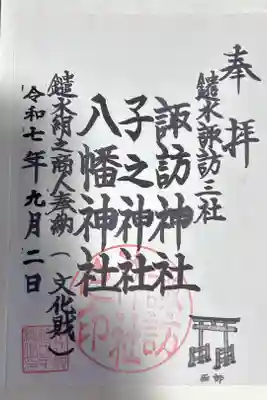 奉拝
鑓水諏訪三社
諏訪神社
子之神社
八幡神社
鑓水絹之商人奉納(文化財)
令和七年九月二日